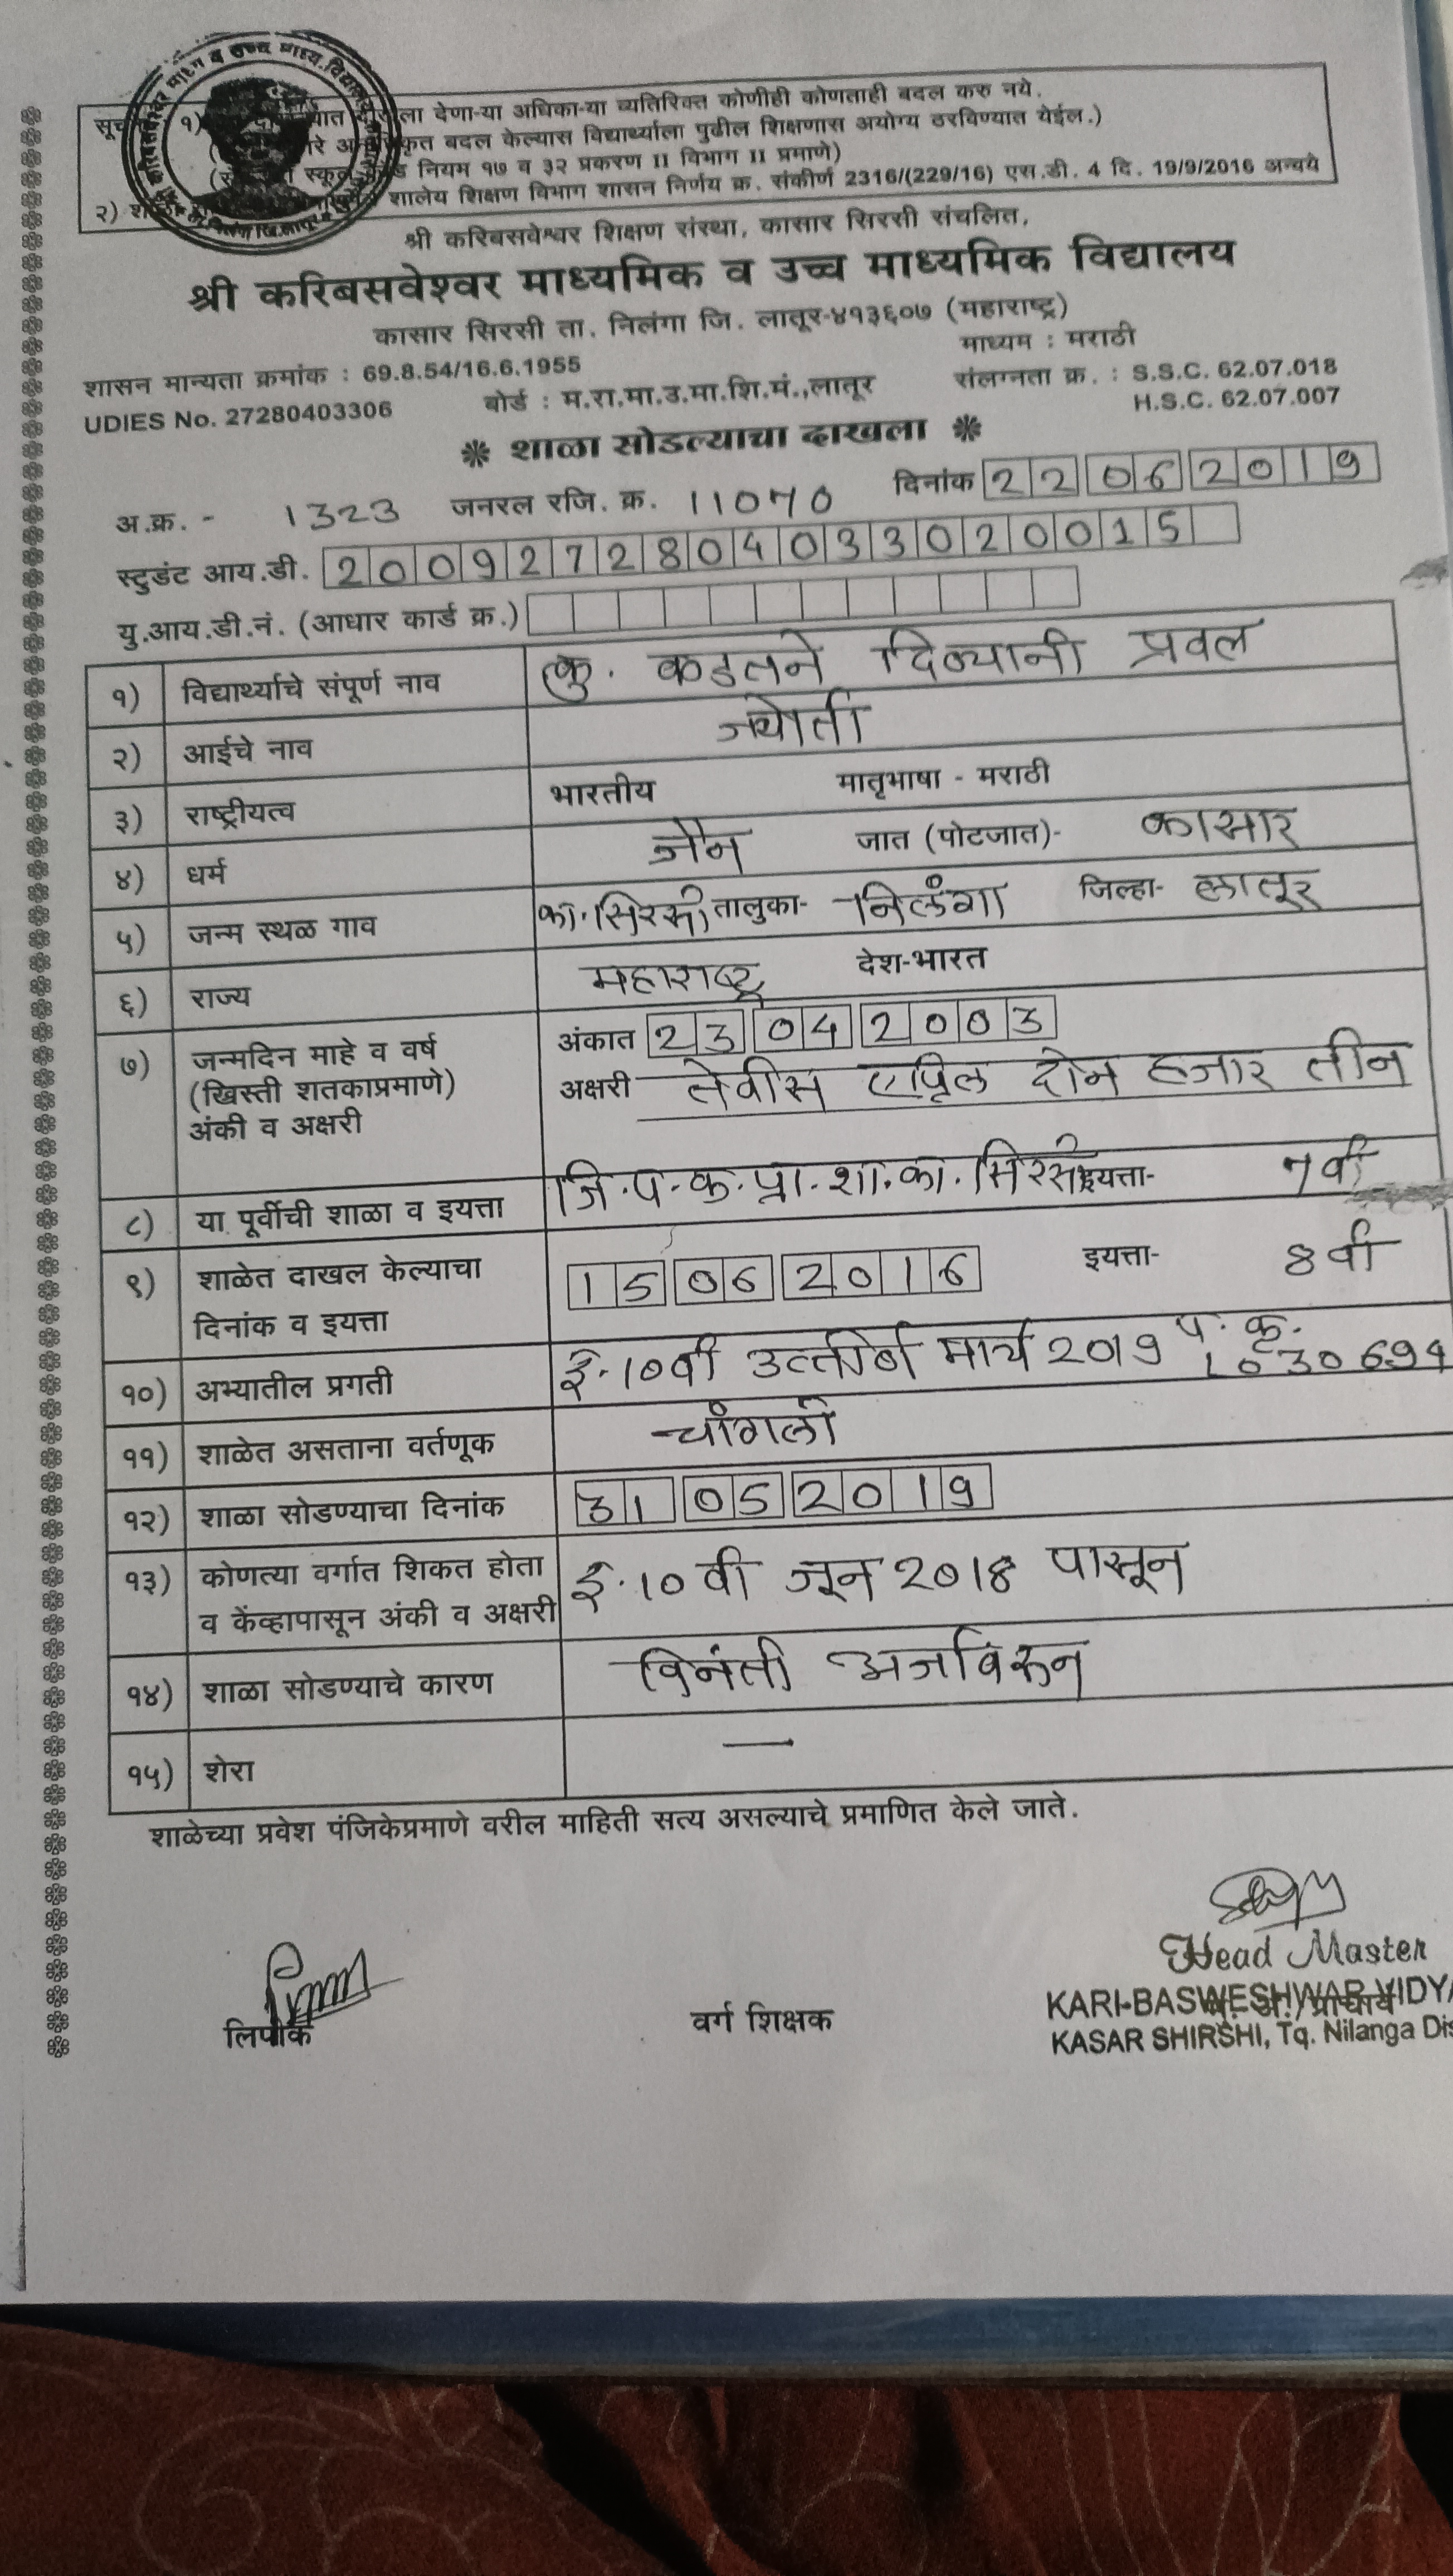 श्री करिबसवेश्वर माध्य व उच्च माध्य. विद्यालय
सू १) ला देणा-या अधिका-या व्यतिरिक्त कोणीही कोणताही बदल करु नये.
कृत बदल केल्यास विद्यार्थ्याला पुढील शिक्षणास अयोग्य ठरविण्यात येईल.)
स्कूल नियम १७ व ३२ प्रकरण II विभाग II प्रमाणे)
२) शालेय शिक्षण विभाग शासन निर्णय क्र. संकीर्ण 2316/(229/16) एस.डी. 4 दि. 19/9/2016 अन्वये
श्री करिबसवेश्वर शिक्षण संस्था, कासार सिरसी संचलित,
श्री करिबसवेश्वर माध्यमिक व उच्च माध्यमिक विद्यालय
कासार सिरसी ता. निलंगा जि. लातूर-४१३६०७ (महाराष्ट्र)
माध्यम : मराठी
शासन मान्यता क्रमांक : 69.8.54/16.6.1955
UDIES No. 27280403306 बोर्ड : म.रा.मा.उ.मा.शि.मं.,लातूर संलग्नता क्र. : S.S.C. 62.07.018
H.S.C. 62.07.007
❋ शाळा सोडल्याचा दाखला ❋
अ.क्र. - 1323 जनरल रजि. क्र. 11070 दिनांक 22062019
स्टुडंट आय.डी. 2009272804033020015
यु.आय.डी.नं. (आधार कार्ड क्र.)
१) विद्यार्थ्याचे संपूर्ण नाव कु. कडतने दिव्यानी प्रवल
२) आईचे नाव ज्योती
३) राष्ट्रीयत्व भारतीय मातृभाषा - मराठी
४) धर्म जैन जात (पोटजात)- कासार
५) जन्म स्थळ गाव का.सिरसी तालुका- निलंगा जिल्हा- लातूर
६) राज्य महाराष्ट्र देश-भारत
७) जन्मदिन माहे व वर्ष अंकात 23042003
(खिस्ती शतकाप्रमाणे) अक्षरी तेवीस एप्रिल दोन हजार तीन
अंकी व अक्षरी
८) या पूर्वीची शाळा व इयत्ता जि.प.क.प्रा.शा.का.सिरसी इयत्ता- 7वी
९) शाळेत दाखल केल्याचा 15062016 इयत्ता- 8वी
दिनांक व इयत्ता
१०) अभ्यातील प्रगती इ.10वी उत्तीर्ण मार्च 2019 प.क्र.
1030694
११) शाळेत असताना वर्तणूक चांगली
१२) शाळा सोडण्याचा दिनांक 31052019
१३) कोणत्या वर्गात शिकत होता इ.10 वी जून 2018 पासून
व केंव्हापासून अंकी व अक्षरी
१४) शाळा सोडण्याचे कारण विनंती अर्जावरुन
१५) शेरा —
शाळेच्या प्रवेश पंजिकेप्रमाणे वरील माहिती सत्य असल्याचे प्रमाणित केले जाते.
Head Master
लिपीक वर्ग शिक्षक KARI-BASWESHWAR VIDYA
KASAR SHIRSHI, Tq. Nilanga Dis